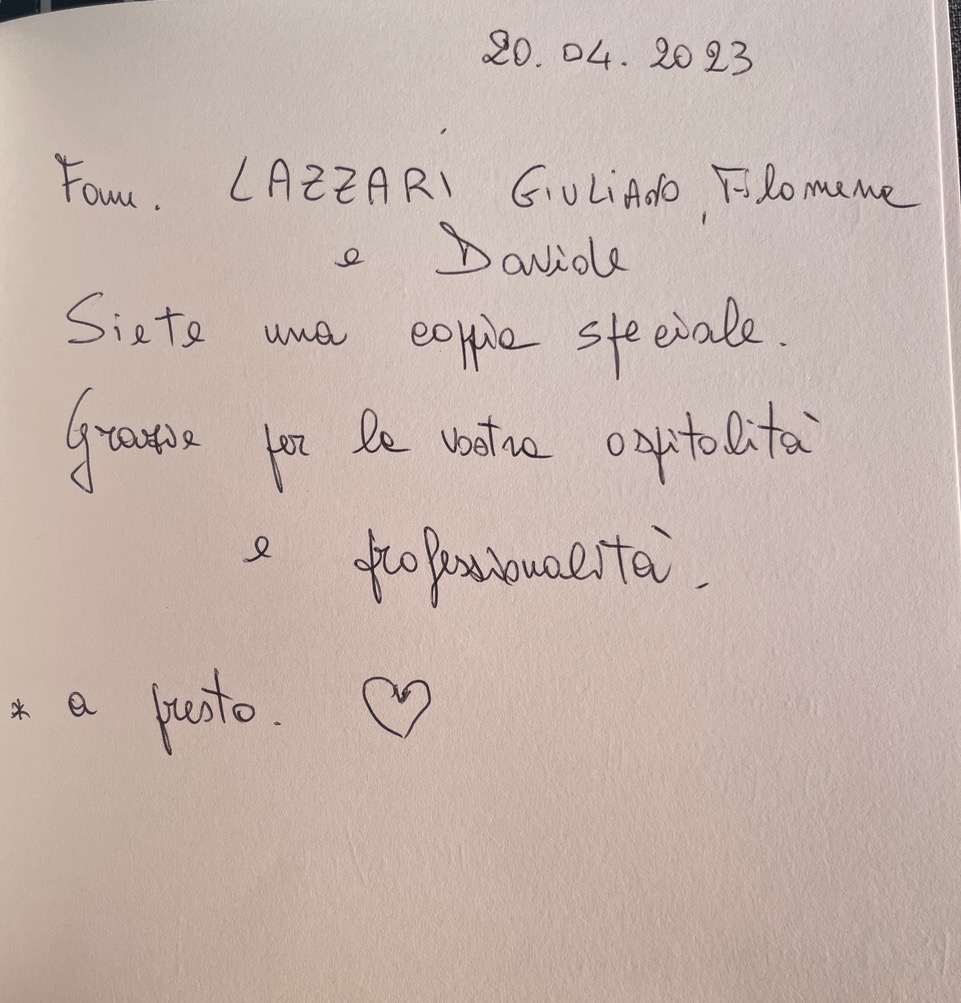 20.04.2023
Fam. LAZZARI GIULIANO, Filomena
e Davide
Siete una coppia speciale.
Grazie per la vostra ospitalità
e professionalità.
* a presto. ♡